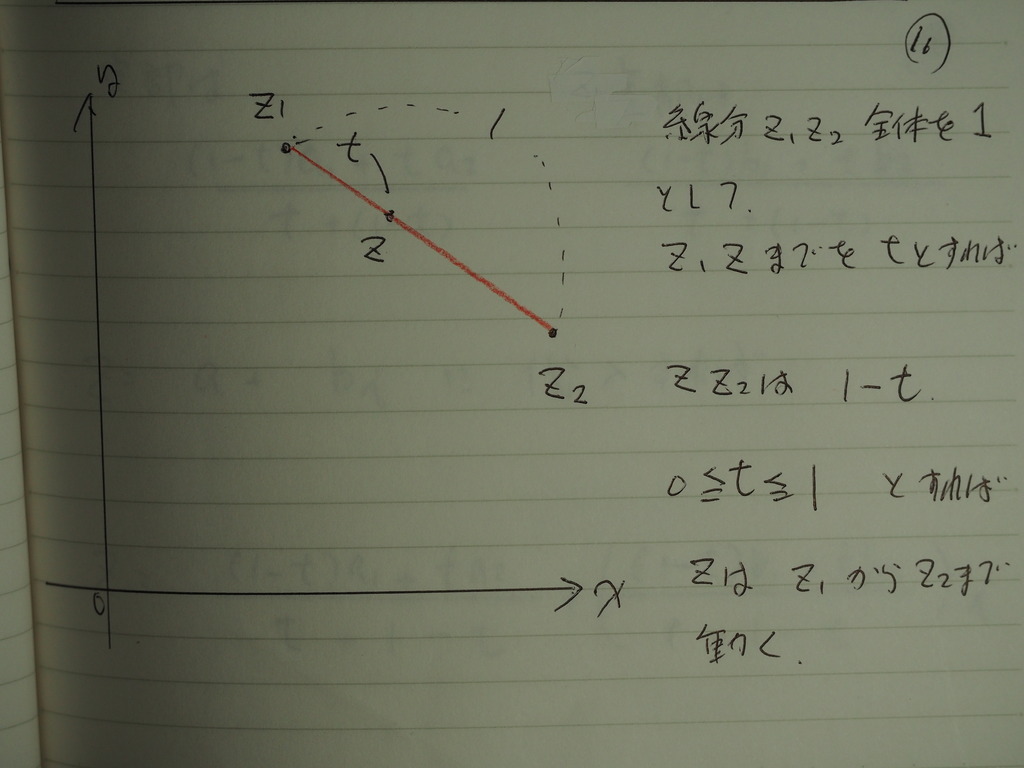 16
y
z1
1
t
z
z2
0
x
線分 z1 z2 全体を 1
として.
z1 z までを t とすれば
z z2 は 1-t.
0≦t≦1 とすれば
zは z1 から z2 まで
動く.